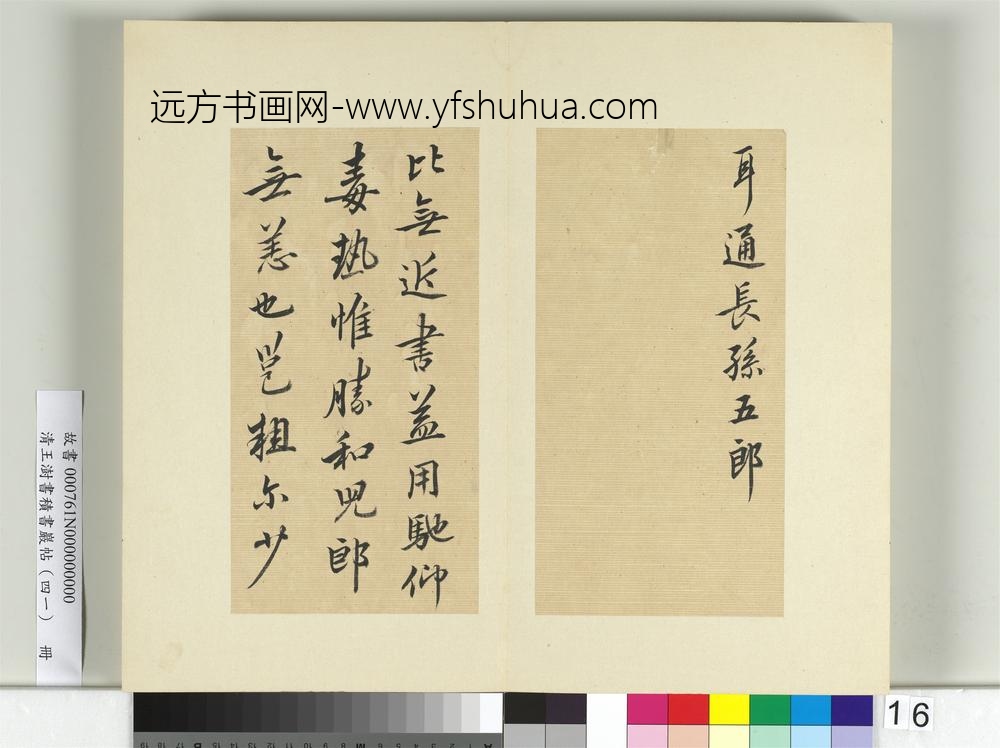 远方书画网-www.yfshuhua.com
耳通長孫五郎
比無近書益用馳仰
毒熱惟勝和兒郎
無恙也邕粗尔少
故書 000761N000000000
清王澍書積書巖帖（四一） 冊
16